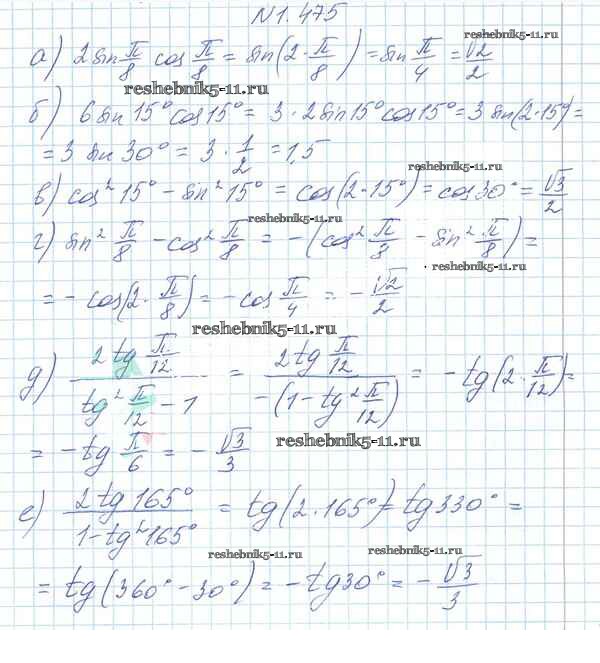 N 1.475
а) 2 sin π/8 cos π/8 = sin(2·π/8) = sin π/4 = √2/2
reshebnik5-11.ru
б) 6 sin 15° cos 15° = 3·2 sin 15° cos 15° = 3 sin(2·15°) =
= 3 sin 30° = 3·1/2 = 1,5
reshebnik5-11.ru
в) cos² 15° - sin² 15° = cos(2·15°) = cos 30° = √3/2
reshebnik5-11.ru
г) sin² π/8 - cos² π/8 = -(cos² π/8 - sin² π/8) =
reshebnik5-11.ru
= -cos(2·π/8) = -cos π/4 = -√2/2
reshebnik5-11.ru
д) 2 tg π/12 / (tg² π/12 - 1) = 2 tg π/12 / (-(1 - tg² π/12)) = -tg(2·π/12) =
reshebnik5-11.ru
= -tg π/6 = -√3/3
е) 2 tg 165° / (1 - tg² 165°) = tg(2·165°) = tg 330° =
reshebnik5-11.ru
reshebnik5-11.ru
= tg(360° - 30°) = -tg 30° = -√3/3